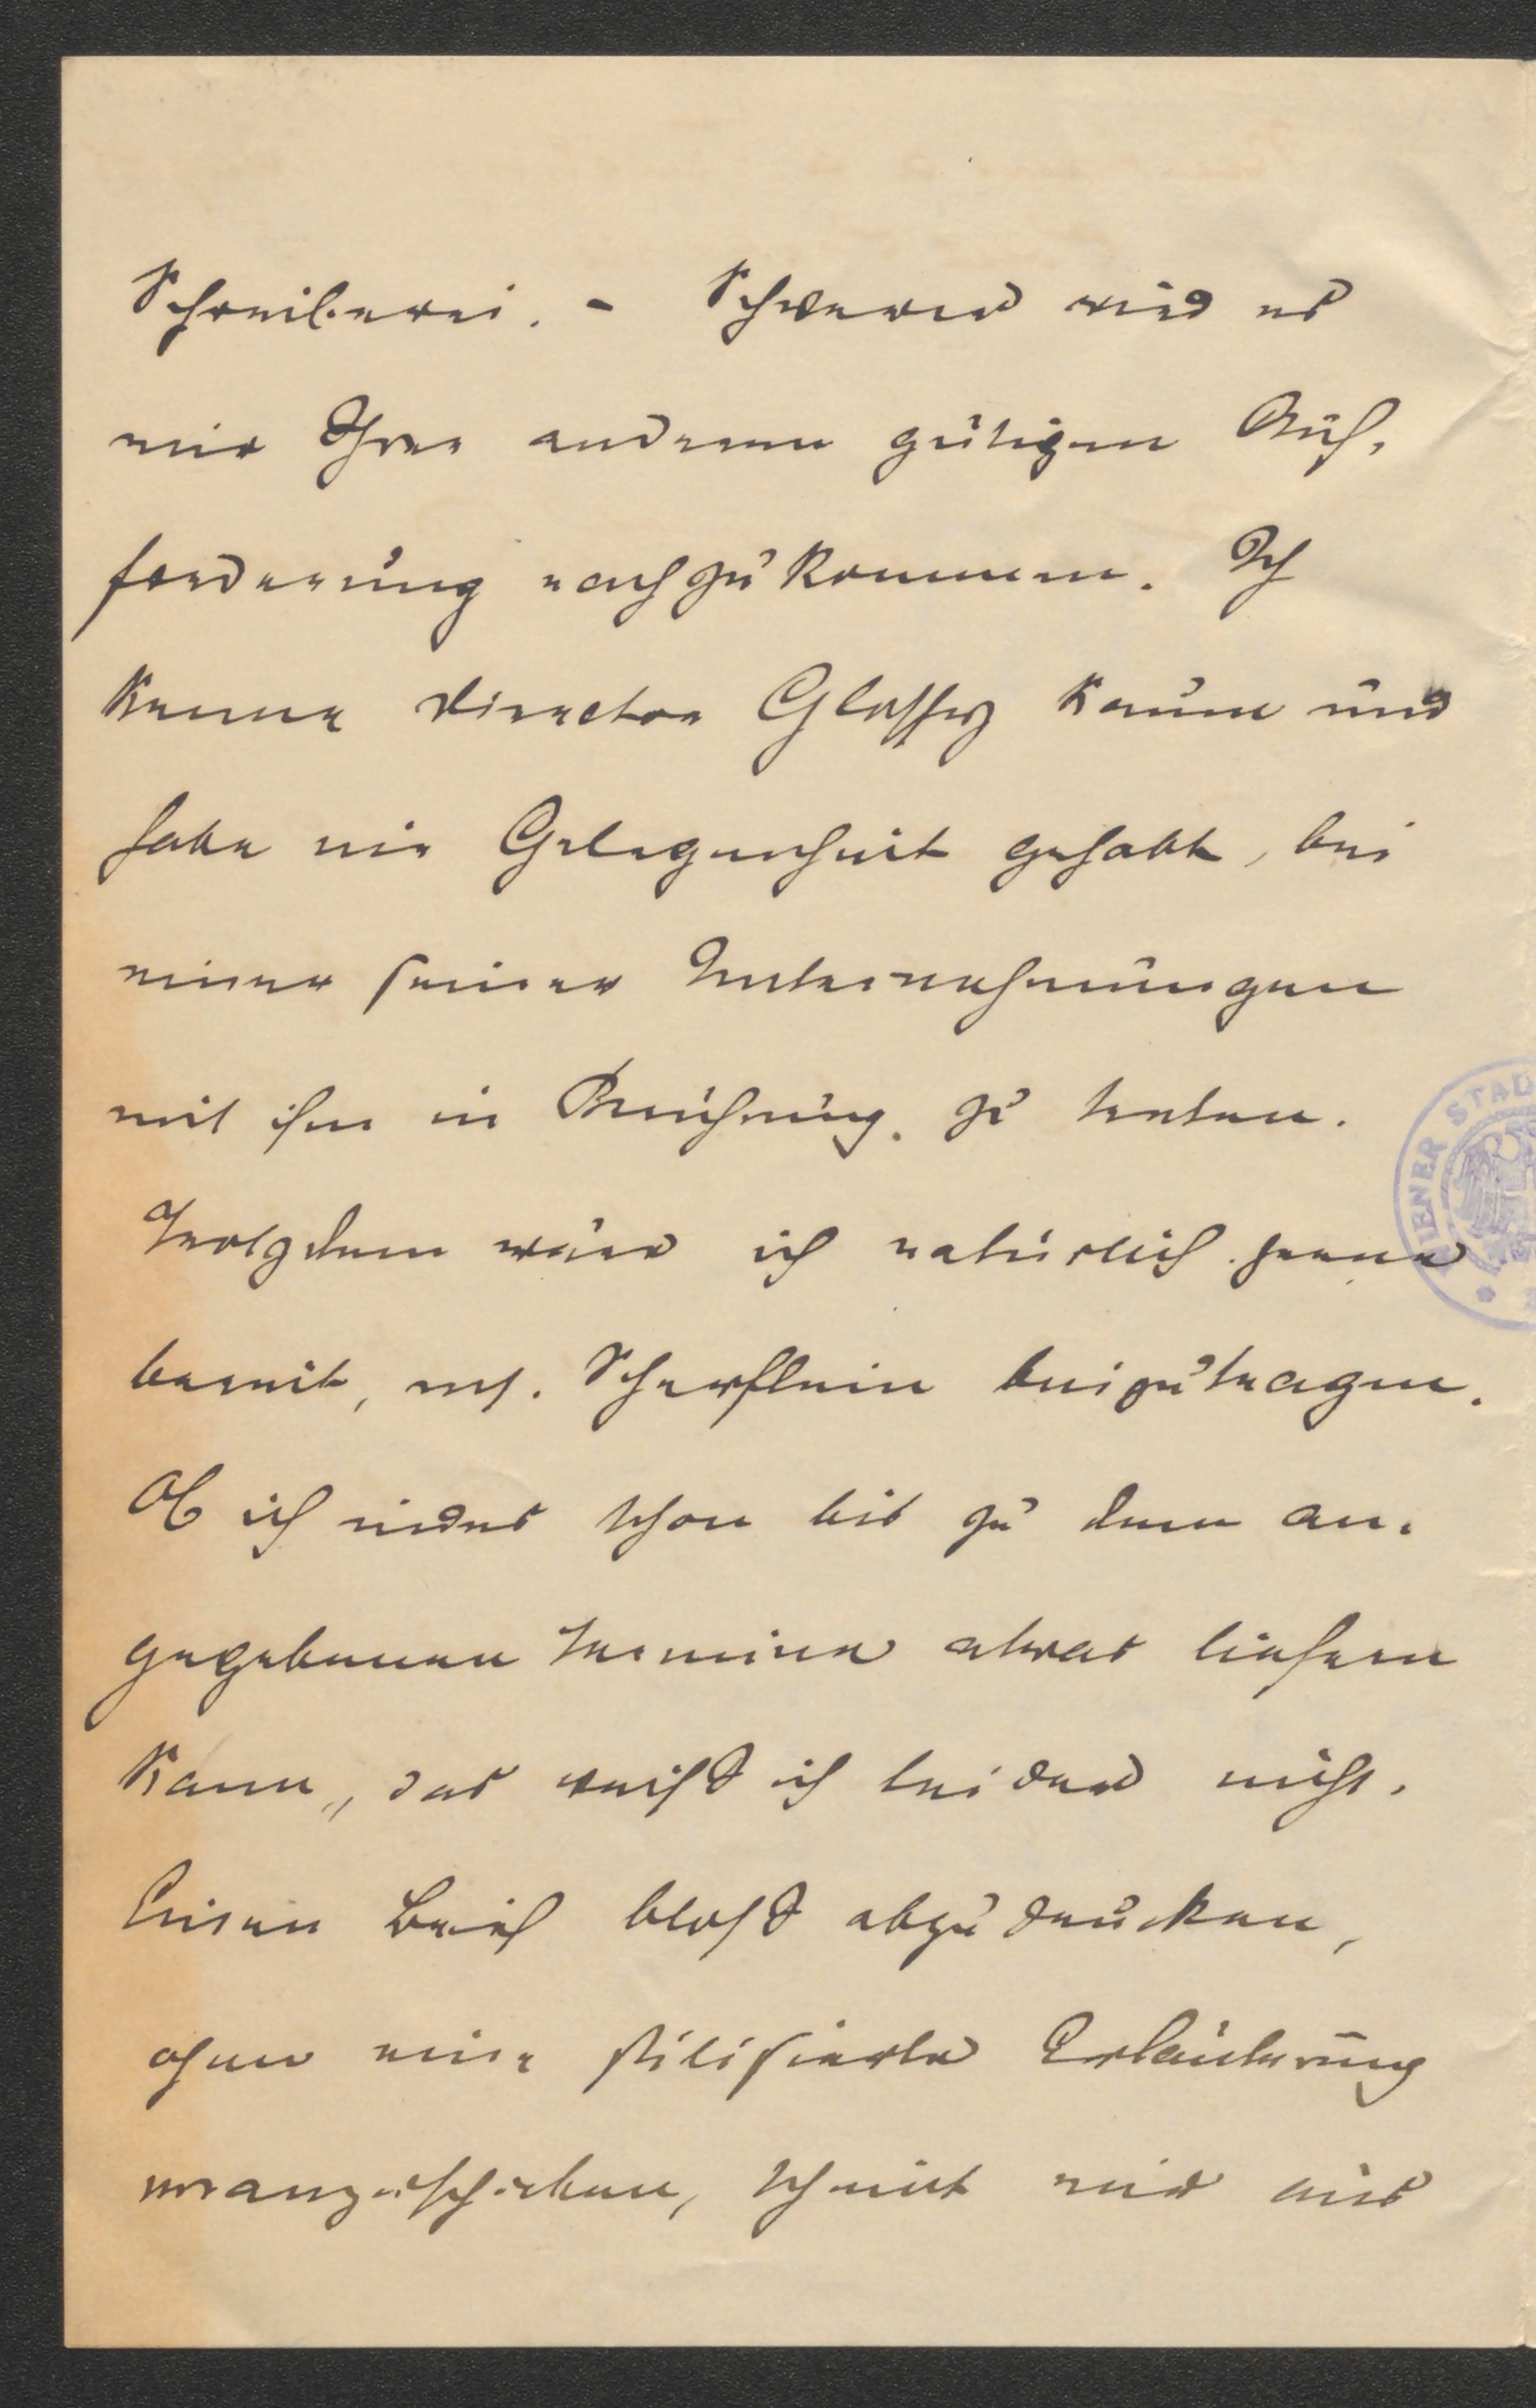 Schreiberei. - Schwerer wird es
mir Ihrer anderen gütigen Auf-
forderung nachzukommen. Ich
kenne Director Glossy kaum und
habe nie Gelegenheit gehabt, bei
einer seiner Unternehmungen
mit ihm in Berührung zu treten.
Trotzdem wäre ich natürlich gerne
bereit, m. Scherflein beizutragen.
Ob ich indes schon bis zu dem an-
gegebenen Termine etwas liefern
kann, das weiß ich leider nicht.
Einen Brief bloß abzudrucken,
ohne eine stilisierte Erläuterung
voranzuschicken, scheint mir nie
WIENER STAD